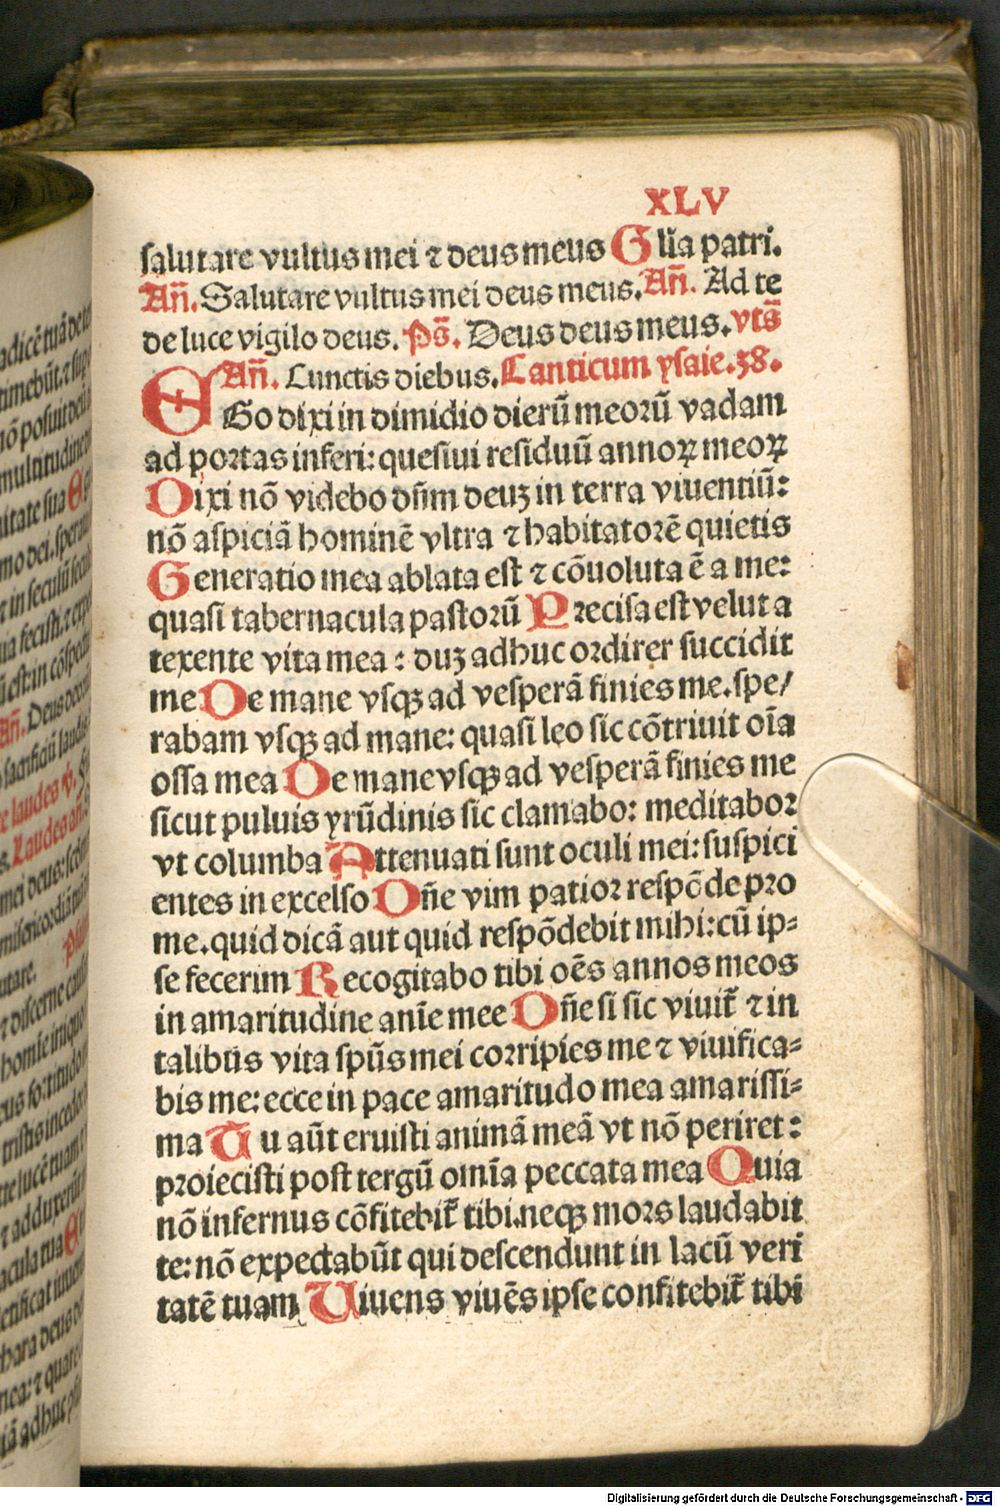 XLV
salutare vultus mei ⁊ deus meus Gl̄ia patri.
Añ. Salutare vultus mei deus meus. Añ. Ad te
de luce vigilo deus. Ps̄. Deus deus meus. vts̄
Añ. Cunctis diebus. Canticum ysaie.38.
EGo dixi in dimidio dierū meorū vadam
ad portas inferi: quesiui residuū annoꝝ meoꝝ
Dixi nō videbo dñm deuꝫ in terra viuentiū:
nō aspiciā hominē vltra ⁊ habitatorē quietis
Generatio mea ablata est ⁊ cōuoluta ē a me:
quasi tabernacula pastorū Precisa est velut a
texente vita mea : duꝫ adhuc ordirer succidit
me De mane vsqꝫ ad vesperā finies me. spe/
rabam vsqꝫ ad mane: quasi leo sic cōtriuit oīa
ossa mea De mane vsqꝫ ad vesperā finies me
sicut puluis yrūdinis sic clamabo: meditabor
vt columba Attenuati sunt oculi mei: suspici
entes in excelso Dñe vim patior respōde pro
me. quid dicā aut quid respōdebit mihi: cū ip-
se fecerim Recogitabo tibi oēs annos meos
in amaritudine anīe mee Dñe si sic viuit̄ ⁊ in
talibus vita spūs mei corripies me ⁊ viuifica-
bis me: ecce in pace amaritudo mea amarissi-
ma Tu aūt eruisti animā meā vt nō periret :
proiecisti post tergū omīa peccata mea Quia
nō infernus cōfitebit̄ tibi. neqꝫ mors laudabit
te: nō expectabūt qui descendunt in lacū veri
tatē tuam Uiuens viuēs ipse confitebit̄ tibi
Digitalisierung gefördert durch die Deutsche Forschungsgemeinschaft - DFG